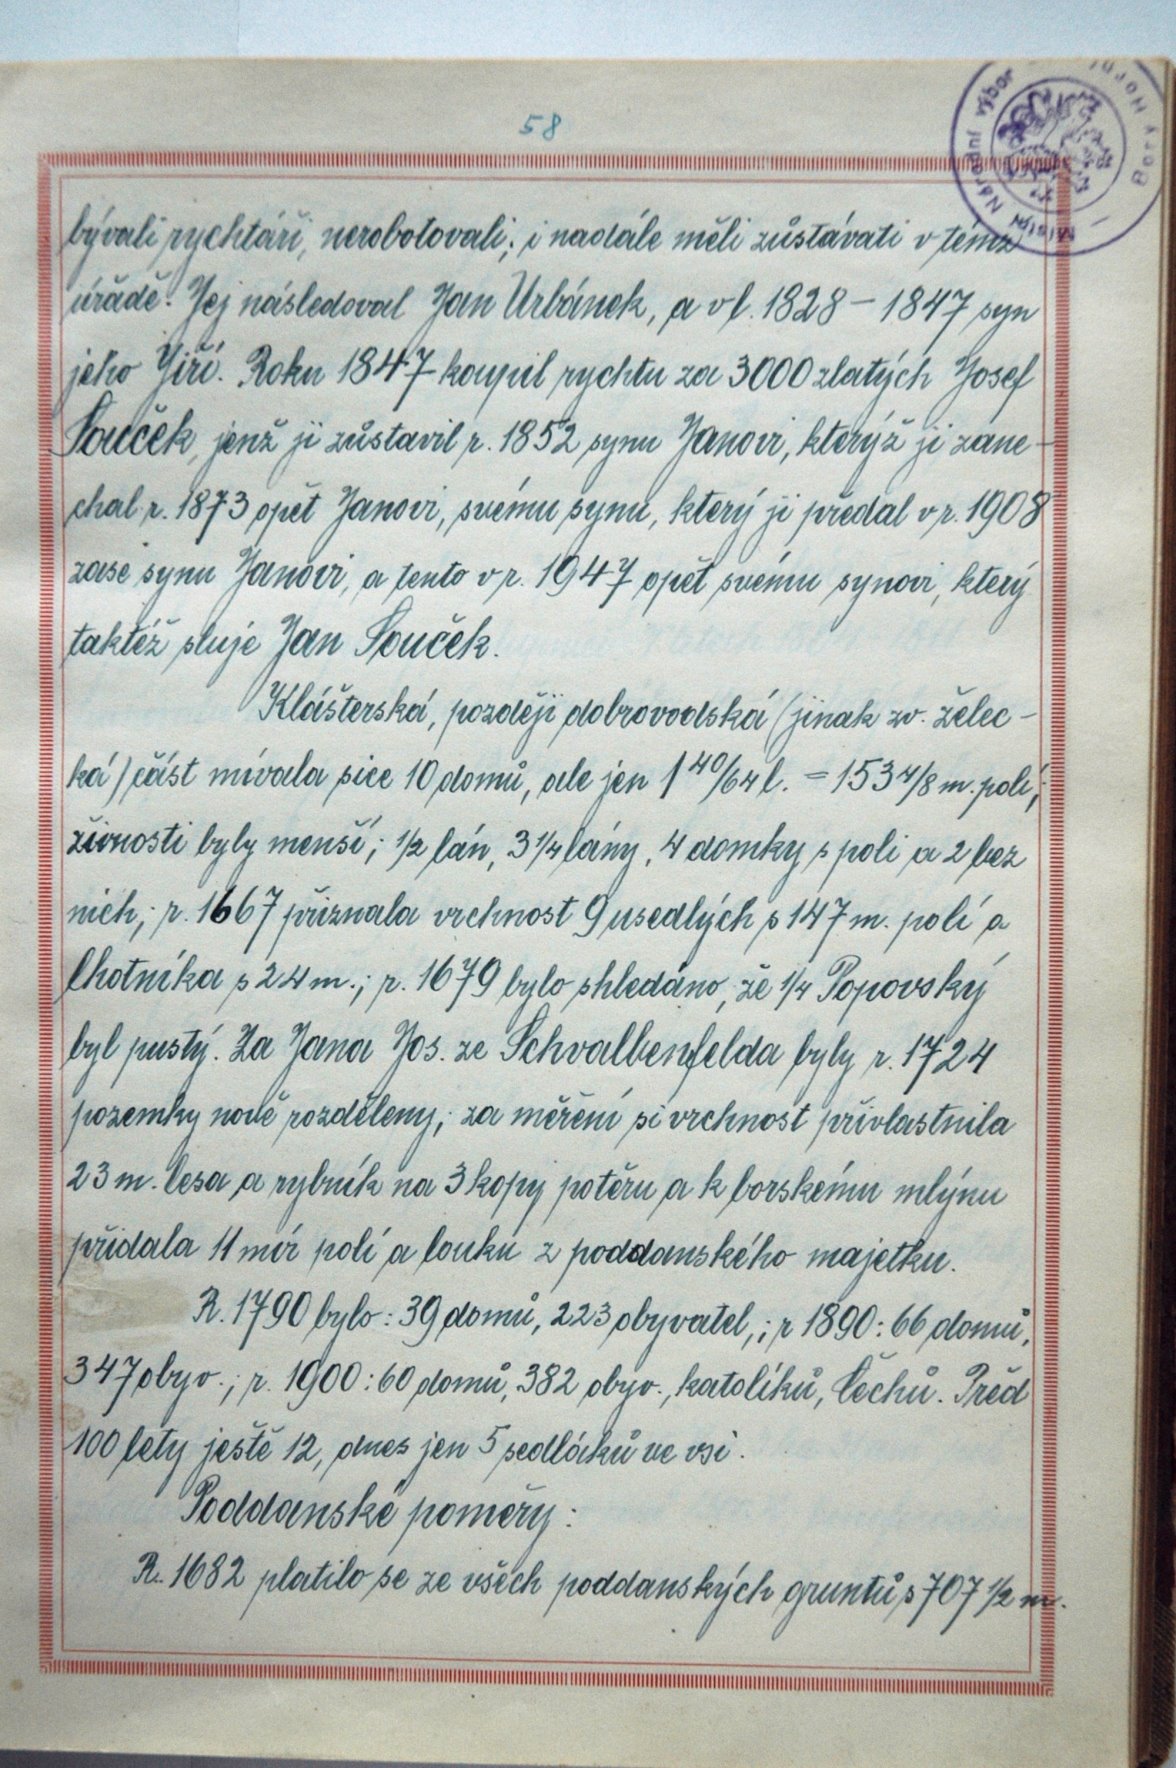 58
Místní Národní výbor
Bory Horní
bývali rychtáři, nerobotovali; i nadále měli zůstávati v témž
úřadě. Jej následoval Jan Urbánek, a v l. 1828 – 1847 syn
jeho Jiří. Roku 1847 koupil rychtu za 3000 zlatých Josef
Souček, jenž ji zůstavil r. 1852 synu Janovi, kterýž ji zane-
chal r. 1873 opět Janovi, svému synu, který ji předal v r. 1908
zase synu Janovi, a tento v r. 1947 opět svému synovi, který
taktéž sluje Jan Souček.
Klášterská, později dobrovodská (jinak zv. želec-
ká) část mívala sice 10 domů, ale jen 1 40/64 l. = 153 4/8 m. polí;
živnosti byly menší; 1/2 lán, 3 1/4 lány, 4 domky s poli a 2 bez
nich; r. 1667 přiznala vrchnost 9 usedlých s 147 m. polí a
lhotníka s 24 m.; r. 1679 bylo shledáno, že 1/4 Popovský
byl pustý. Za Jana Jos. ze Schvalbenfelda byly r. 1724
pozemky nově rozděleny; za měření si vrchnost přivlastnila
23 m. lesa a rybník na 3 kopy potěru a k borskému mlýnu
přidala 11 mír polí a louku z poddanského majetku.
R. 1790 bylo: 39 domů, 223 obyvatel,; r 1890: 66 domů,
347 obyv.; r. 1900: 60 domů, 382 obyv., katolíků, Čechů. Před
100 lety ještě 12, dnes jen 5 sedláků ve vsi.
Poddanské poměry:
R. 1682 platilo se ze všech poddanských gruntů s 707 1/2 m.